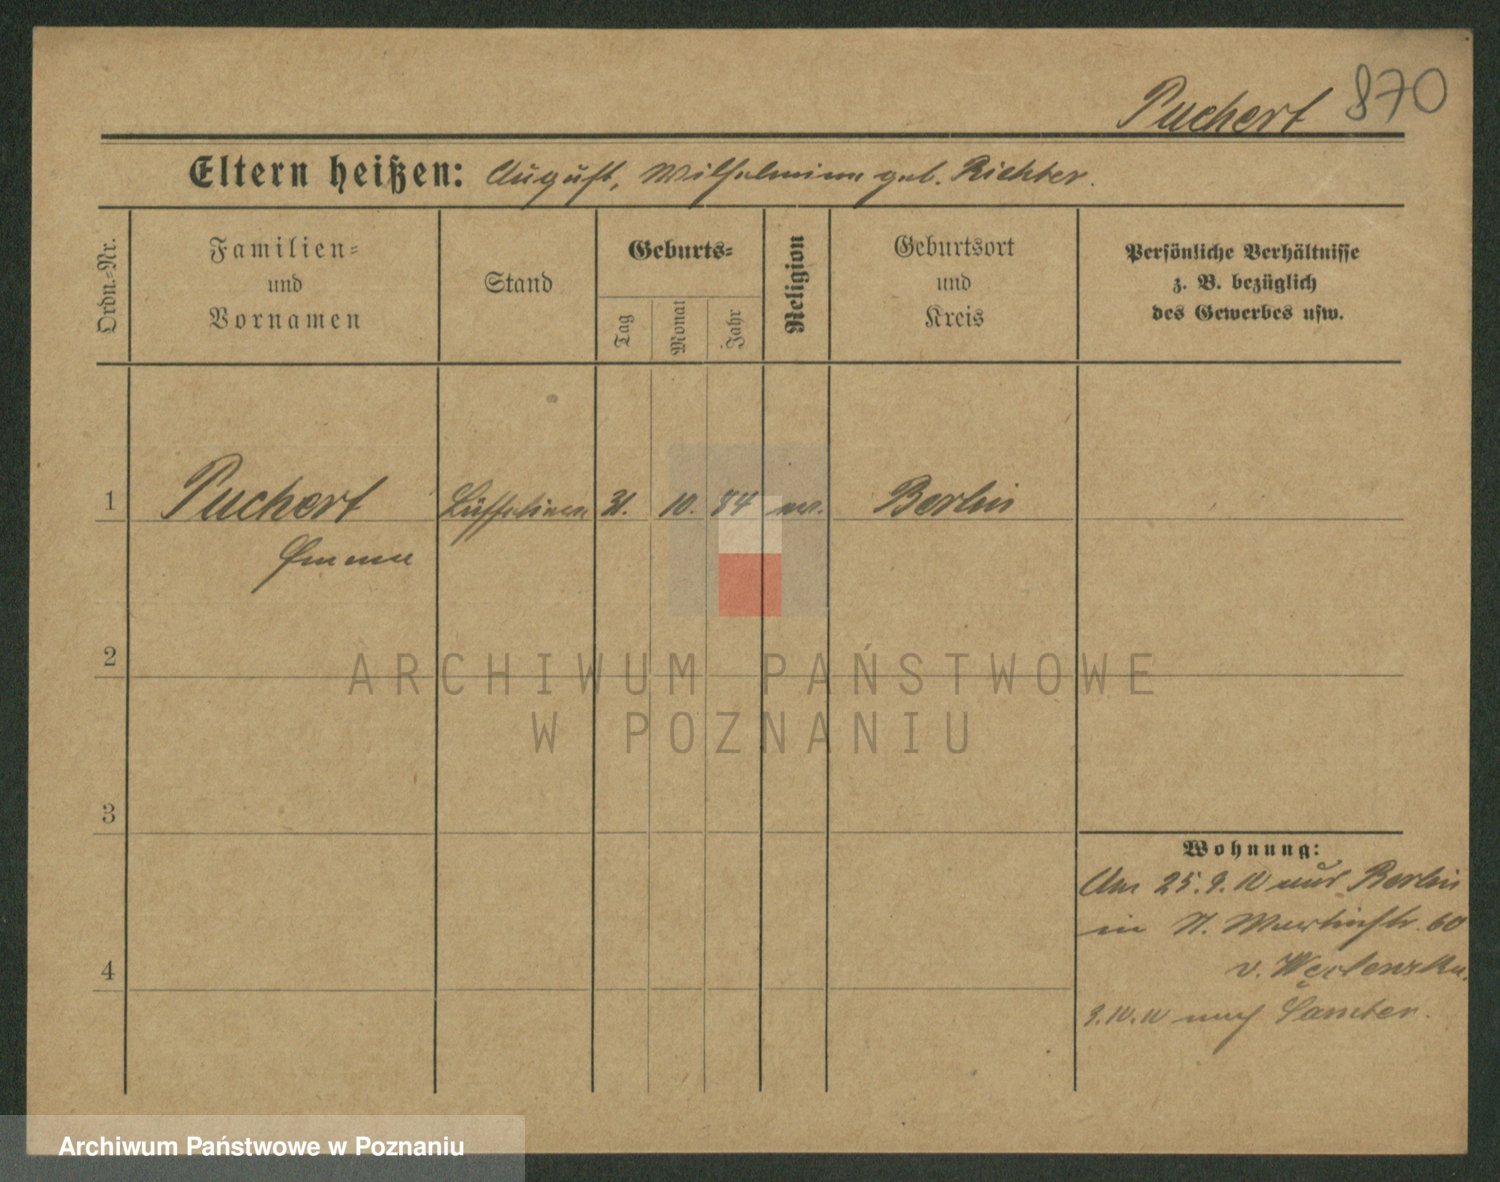 870
Puchert
Eltern heißen: August, Wilhelmine geb. Richter.
Ordn.=Nr.
Familien=
und
Vornamen
Stand
Geburts=
Tag
Monat
Jahr
Religion
Geburtsort
und
Kreis
Persönliche Verhältnisse
z. B. bezüglich
des Gewerbes usw.
1 Puchert 31. 10. 84 ev. Berlin
Emma
2
ARCHIWUM PAŃSTWOWE
W POZNANIU
3
Wohnung:
Am 25.9.10 aus Berlin
in St. Martinstr. 60
v.
4
9.10.10 nach Samter.
Archiwum Państwowe w Poznaniu